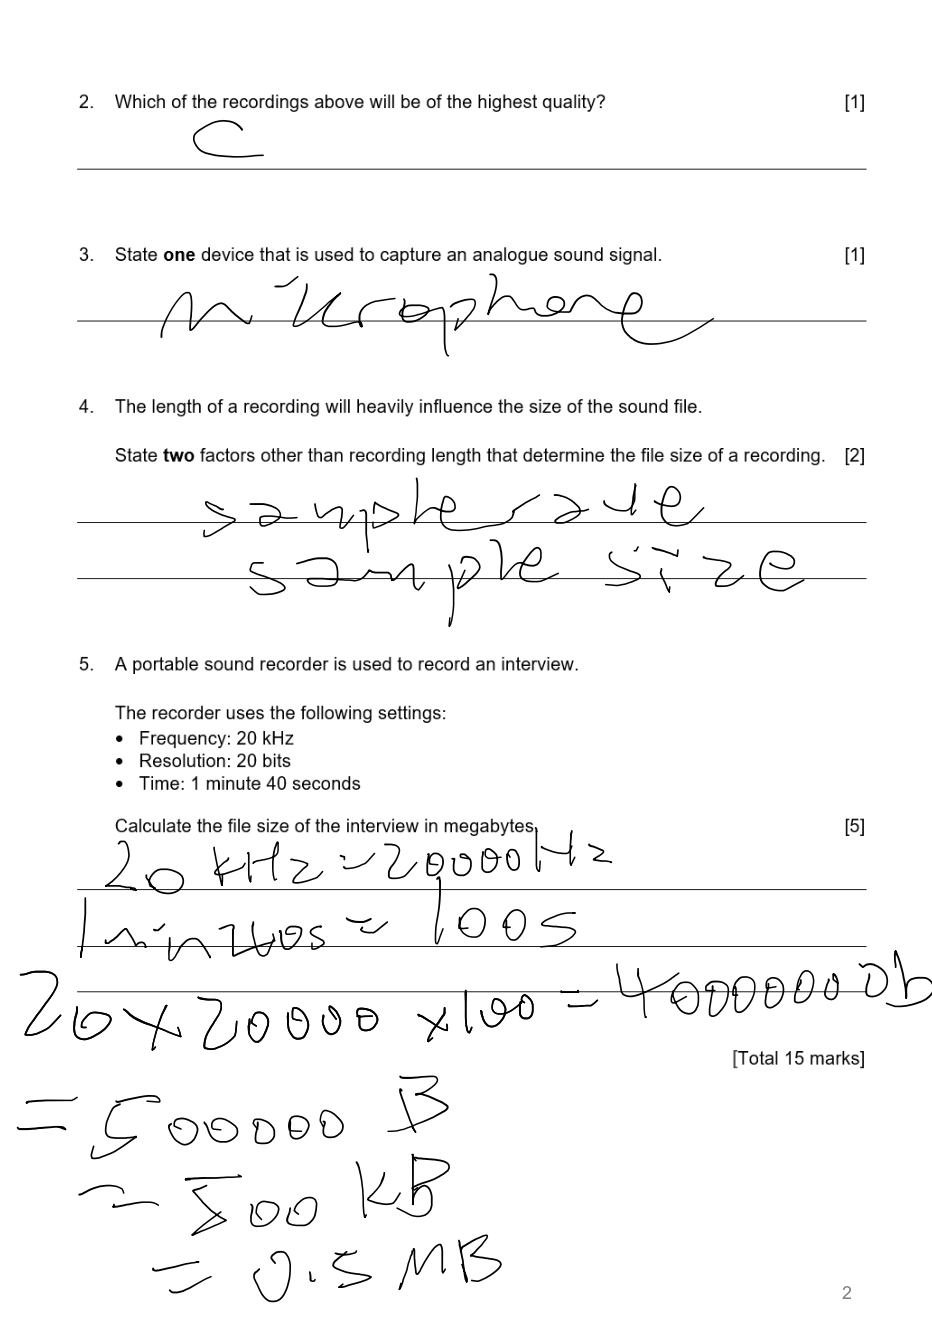 2. Which of the recordings above will be of the highest quality? [1]
C
3. State one device that is used to capture an analogue sound signal. [1]
mikrophone
4. The length of a recording will heavily influence the size of the sound file.
State two factors other than recording length that determine the file size of a recording. [2]
sample rate
sample size
5. A portable sound recorder is used to record an interview.
The recorder uses the following settings:
• Frequency: 20 kHz
• Resolution: 20 bits
• Time: 1 minute 40 seconds
Calculate the file size of the interview in megabytes. [5]
20 kHz = 20000Hz
1min 40s = 100s
20 x 20000 x 100 = 40000000b
[Total 15 marks]
= 500000 B
= 500 KB
= 0.5 MB
2